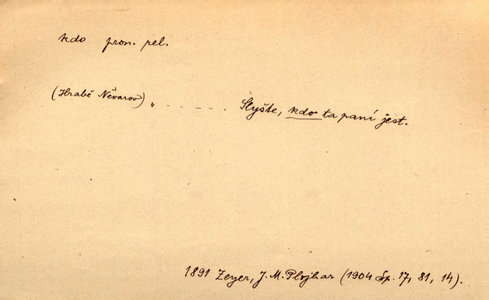 kdo pron. rel.
(HraběNěvarov) „ . - - - - . Slyšte, kdo ta paní jest.
1891 Zeyer, J. M. Plojhar (1904 Sp. 17, 81, 14).